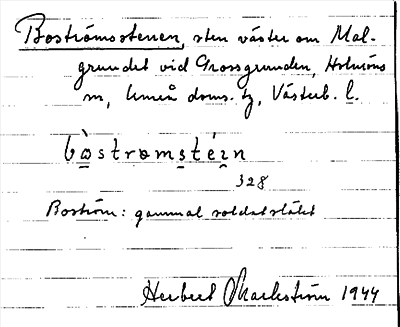 Boströmsstenen, sten väster om Mal-
grundet vid Grossgrunden, Holmöns
sn, Umeå doms. tg, Västerb. l.
bò̱s̱tro̱ms̱téi̯n
328
Boström: gammal soldatsläkt
Herbert Markström 1944